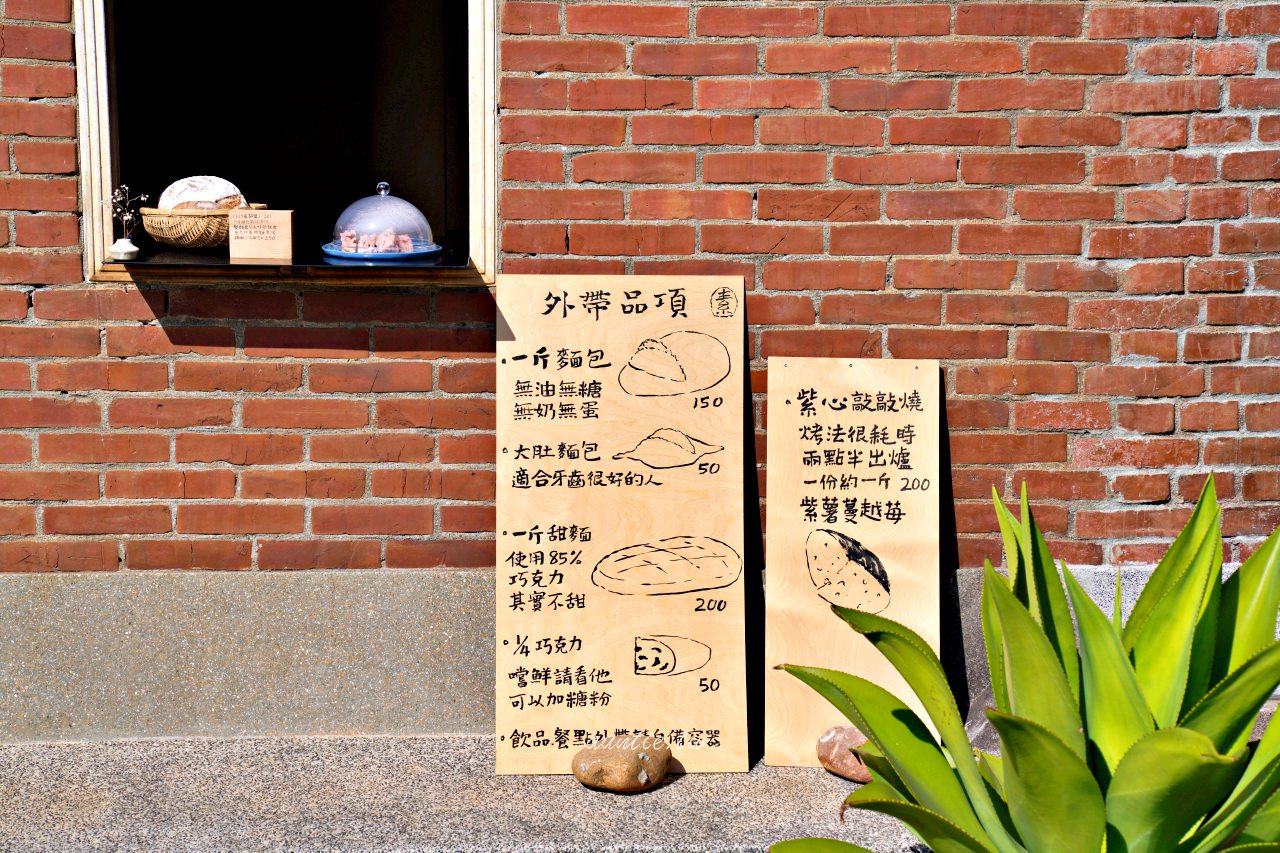 外帶品項
素
一斤麵包
無油無糖
無奶無蛋
150
大肚麵包
50
適合牙齒很好的人
一斤甜麵
使用85%
巧克力
其實不甜
200
1/4 巧克力
嚐鮮請看他
50
可以加糖粉
飲品.餐點外帶請自備容器
紫心敲敲燒
烤法很耗時
兩點半出爐
一份約一斤 200
紫薯蔓越莓